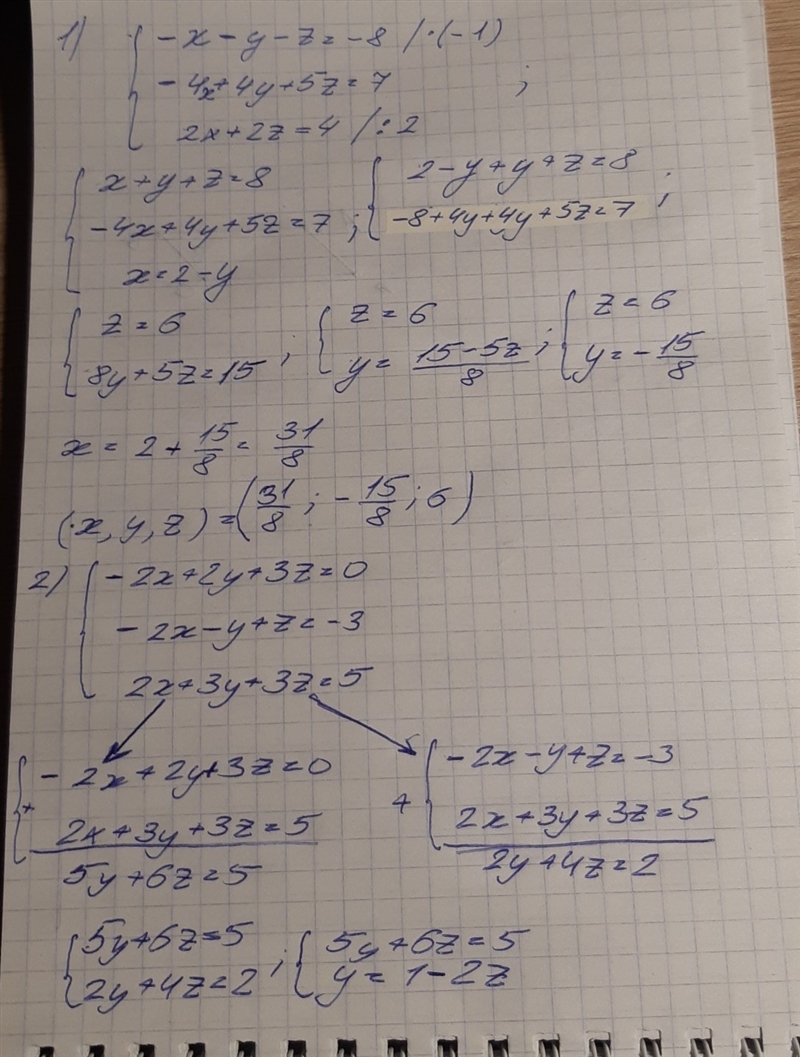 1) { -x-y-z=-8 /·(-1)
-4x+4y+5z=7 ;
2x+2z=4 /:2
{ x+y+z=8 { 2-y+y+z=8
-4x+4y+5z=7 ; -8+4y+4y+5z=7 ;
x=2-y
{ z=6 { z=6 { z=6
8y+5z=15 ; y= (15-5z)/8 ; y=-15/8
x=2+15/8=31/8
(x,y,z)=(31/8;-15/8;6)
2) { -2x+2y+3z=0
-2x-y+z=-3
2x+3y+3z=5
+ { -2x+2y+3z=0
2x+3y+3z=5
5y+6z=5
+ { -2x-y+z=-3
2x+3y+3z=5
2y+4z=2
{ 5y+6z=5 { 5y+6z=5
2y+4z=2 ; y=1-2z